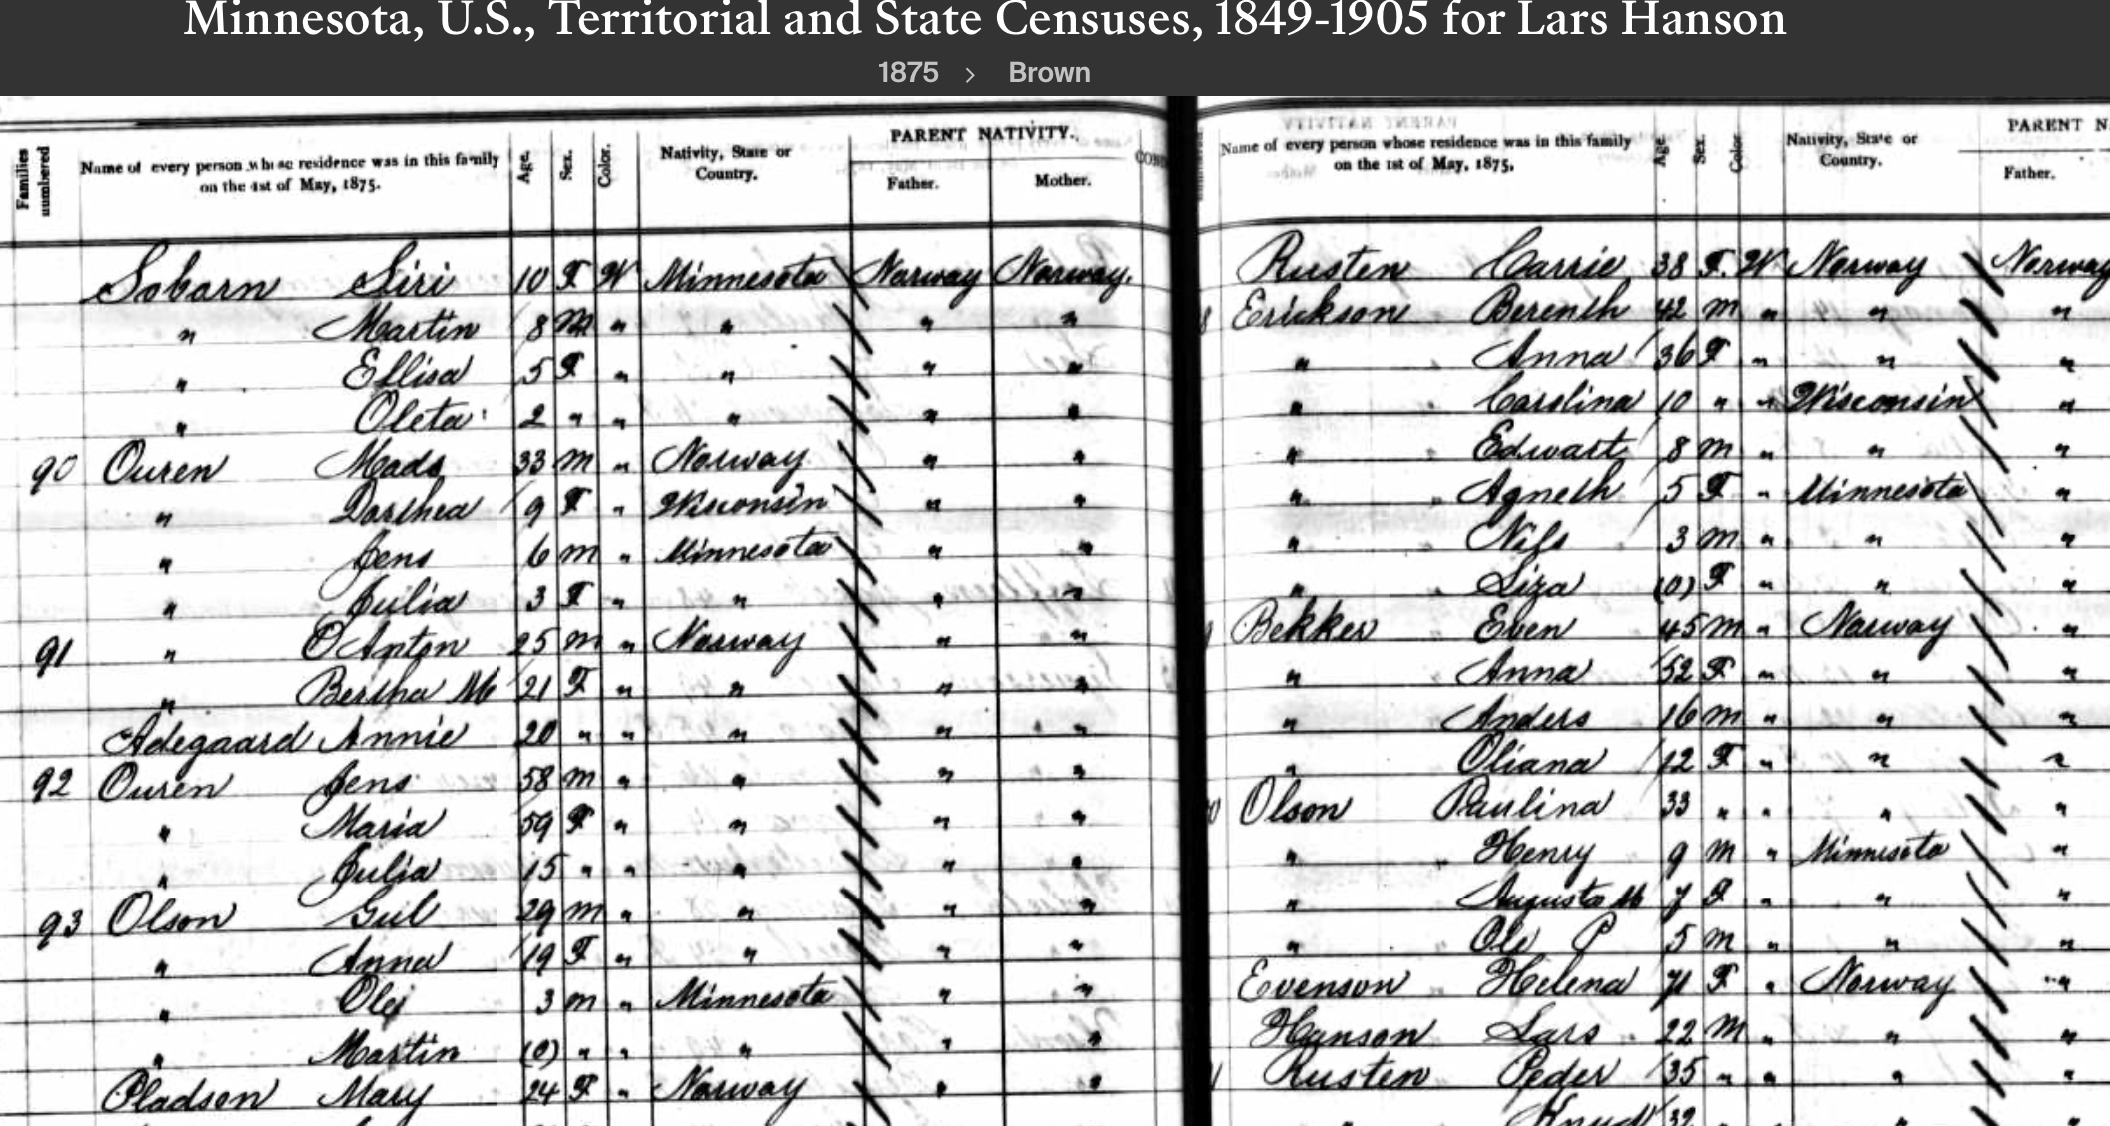 Minnesota, U.S., Territorial and State Censuses, 1849-1905 for Lars Hanson
1875 > Brown
Families numbered
Name of every person whose residence was in this family on the 1st of May, 1875.
Age. Sex. Color.
Nativity, State or Country.
PARENT NATIVITY.
Father. Mother.
Soborn Siri 10 F W Minnesota Norway Norway.
" Martin 8 M " " " "
" Ellisa 5 F " " " "
" Oleta 2 " " " " "
90 Ouren Mads 33 m " Norway " "
" Dorthea 9 F " Wisconsin " "
" Jens 6 m " Minnesota " "
" Julia 3 F " " " "
91 " O Anton 25 m " Norway " "
" Bertha M 21 F " " " "
Adegaard Annie 20 " " " " "
92 Ouren Jens 58 m " " " "
" Maria 59 F " " " "
" Julia 15 " " " " "
93 Olson Gul 29 m " " " "
" Anna 19 F " " " "
" Ole 3 m " Minnesota " "
" Martin (0) " " " " "
Pladson Mary 24 F " Norway " "
Name of every person whose residence was in this family on the 1st of May, 1875,
Age. Sex. Color
Nativity, State or Country.
PARENT N
Father.
Rusten Carrie 38 F. W Norway Norway
Erickson Bernth 42 m " " "
" Anna 36 F " " "
" Carolina 10 " " Wisconsin "
" Edwart 8 m " " "
" Agneth 5 F " Minnesota "
" Nils 3 m " " "
" Liza (0) F " " "
Bekker Even 45 m " Norway "
" Anna 52 F " " "
" Anders 16 m " " "
" Oliana 12 F " " "
Olson Paulina 33 " " " "
" Henry 9 m " Minnesota "
" Augusta M 7 F " " "
" Ole P 5 m " " "
Evenson Helena 71 F " Norway "
Hanson Lars 22 M " " "
Rusten Peder 35 " " " "
Knud 32